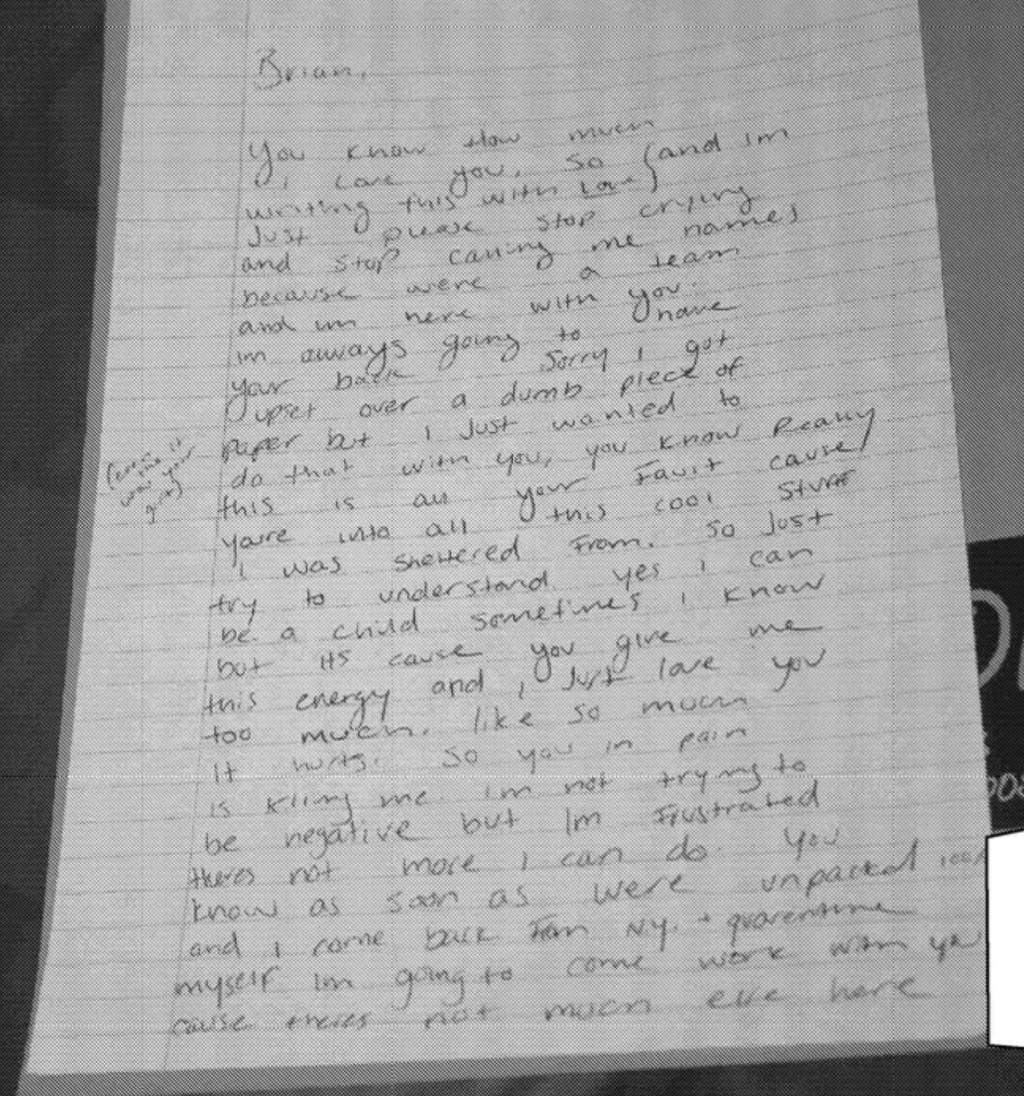 Brian,
You know How much
I Love you, so (and im
writing this with Love)
Just please stop crying
and stop calling me names
because were a team
and im here with you.
im always going to have
your back. Sorry i got
upset over a dumb piece of
paper but i Just wanted to
do that with you, you know Really
this is all your Fault cause
you're into all this cool stuff
i was sheltered From. So Just
try to understand yes i can
be a child sometimes i know
but its cause you give me
this energy and i Just love you
too much, like so much
it hurts. So you in pain
is killing me. im not trying to
be negative but Im Frustrated
theres not more i can do. You
know as soon as were unpacked
and i come back From N.Y. + quarentine
myself Im going to come work with you
cause theres not much else here